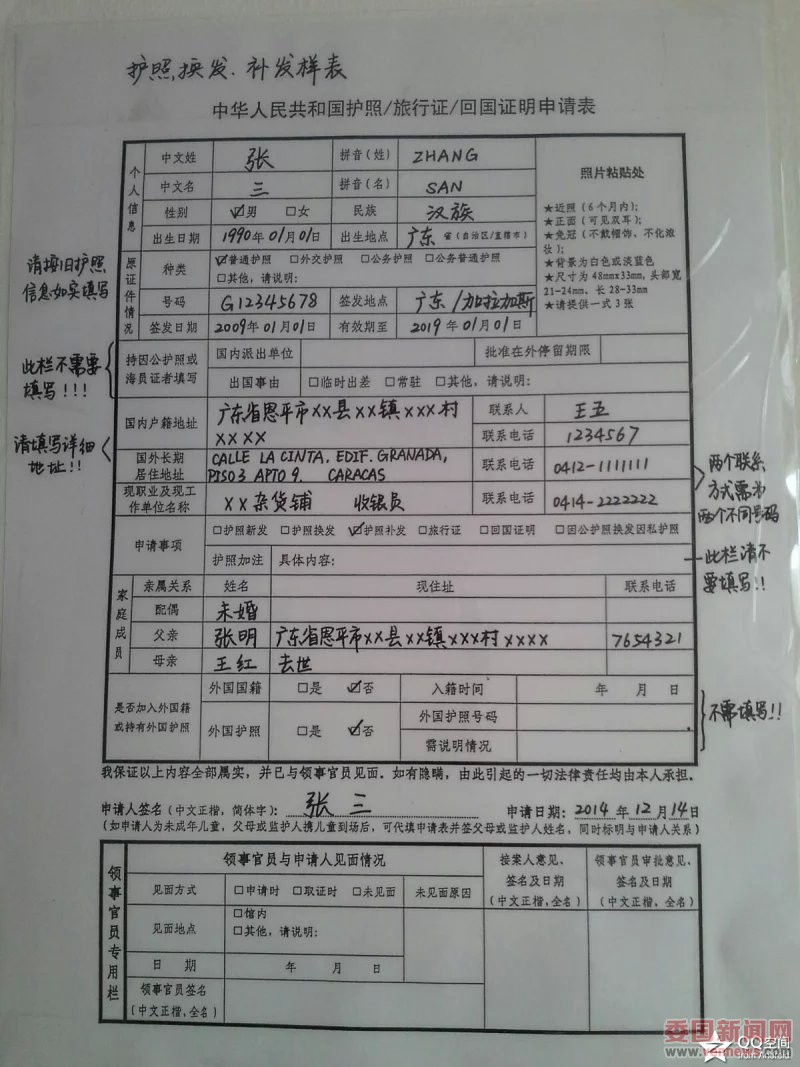 护照换发、补发样表
中华人民共和国护照/旅行证/回国证明申请表
个人信息
中文姓 张 拼音(姓) ZHANG
中文名 三 拼音(名) SAN
性别 ☑男 □女 民族 汉族
出生日期 1990年01月01日 出生地点 广东 省(自治区/直辖市)
照片粘贴处
★近照(6个月内);
★正面(可见双耳);
★免冠(不戴帽饰、不化浓
妆);
★背景为白色或淡蓝色
★尺寸为48mm×33mm,头部宽
21-24mm、长28-33mm
★请提供一式3张
请按旧护照
信息如实填写
原证件情况
种类 ☑普通护照 □外交护照 □公务护照 □公务普通护照
□其他,请说明:
号码 G12345678 签发地点 广东/加拉加斯
签发日期 2009年01月01日 有效期至 2019年01月01日
此栏不需要
填写!!!
持因公护照或
海员证者填写
国内派出单位 批准在外停留期限
出国事由 □临时出差 □常驻 □其他,请说明:
请填写详细
地址!!
国内户籍地址 广东省恩平市××县××镇×××村
××××
联系人 王五
联系电话 1234567
国外长期
居住地址
CALLE LA CINTA, EDIF. GRANADA,
PISO3 APTO 9. CARACAS
联系电话 0412-1111111
现职业及现工
作单位名称
××杂货铺 收银员 联系电话 0414-2222222
两个联系
方式需为
两个不同号码
申请事项 □护照新发 □护照换发 ☑护照补发 □旅行证 □回国证明 □因公护照换发因私护照
护照加注 具体内容:
此栏请不
要填写!!
家庭成员
亲属关系 姓名 现住址 联系电话
配偶 未婚
父亲 张明 广东省恩平市××县××镇×××村×××× 7654321
母亲 王红 去世
是否加入外国籍
或持有外国护照
外国国籍 □是 ☑否 入籍时间 年 月 日
外国护照 □是 ☑否 外国护照号码
需说明情况
不需填写!!
我保证以上内容全部属实,并已与领事官员见面。如有隐瞒,由此引起的一切法律责任均由本人承担。
申请人签名(中文正楷,简体字): 张三 申请日期:2014年12月14日
(如申请人为未成年儿童,父母或监护人携儿童到场后,可代填申请表并签父母或监护人姓名,同时标明与申请人关系)
领事官员专用栏
领事官员与申请人见面情况
接案人意见、
签名及日期
(中文正楷、全名)
领事官员审批意见、
签名及日期
(中文正楷、全名)
见面方式 □申请时 □取证时 □未见面 未见面原因
见面地点 □馆内
□其他,请说明:
日 期 年 月 日
领事官员签名
(中文正楷,全名)
委国新闻网
www.vennews.com
QQ空间
from Android